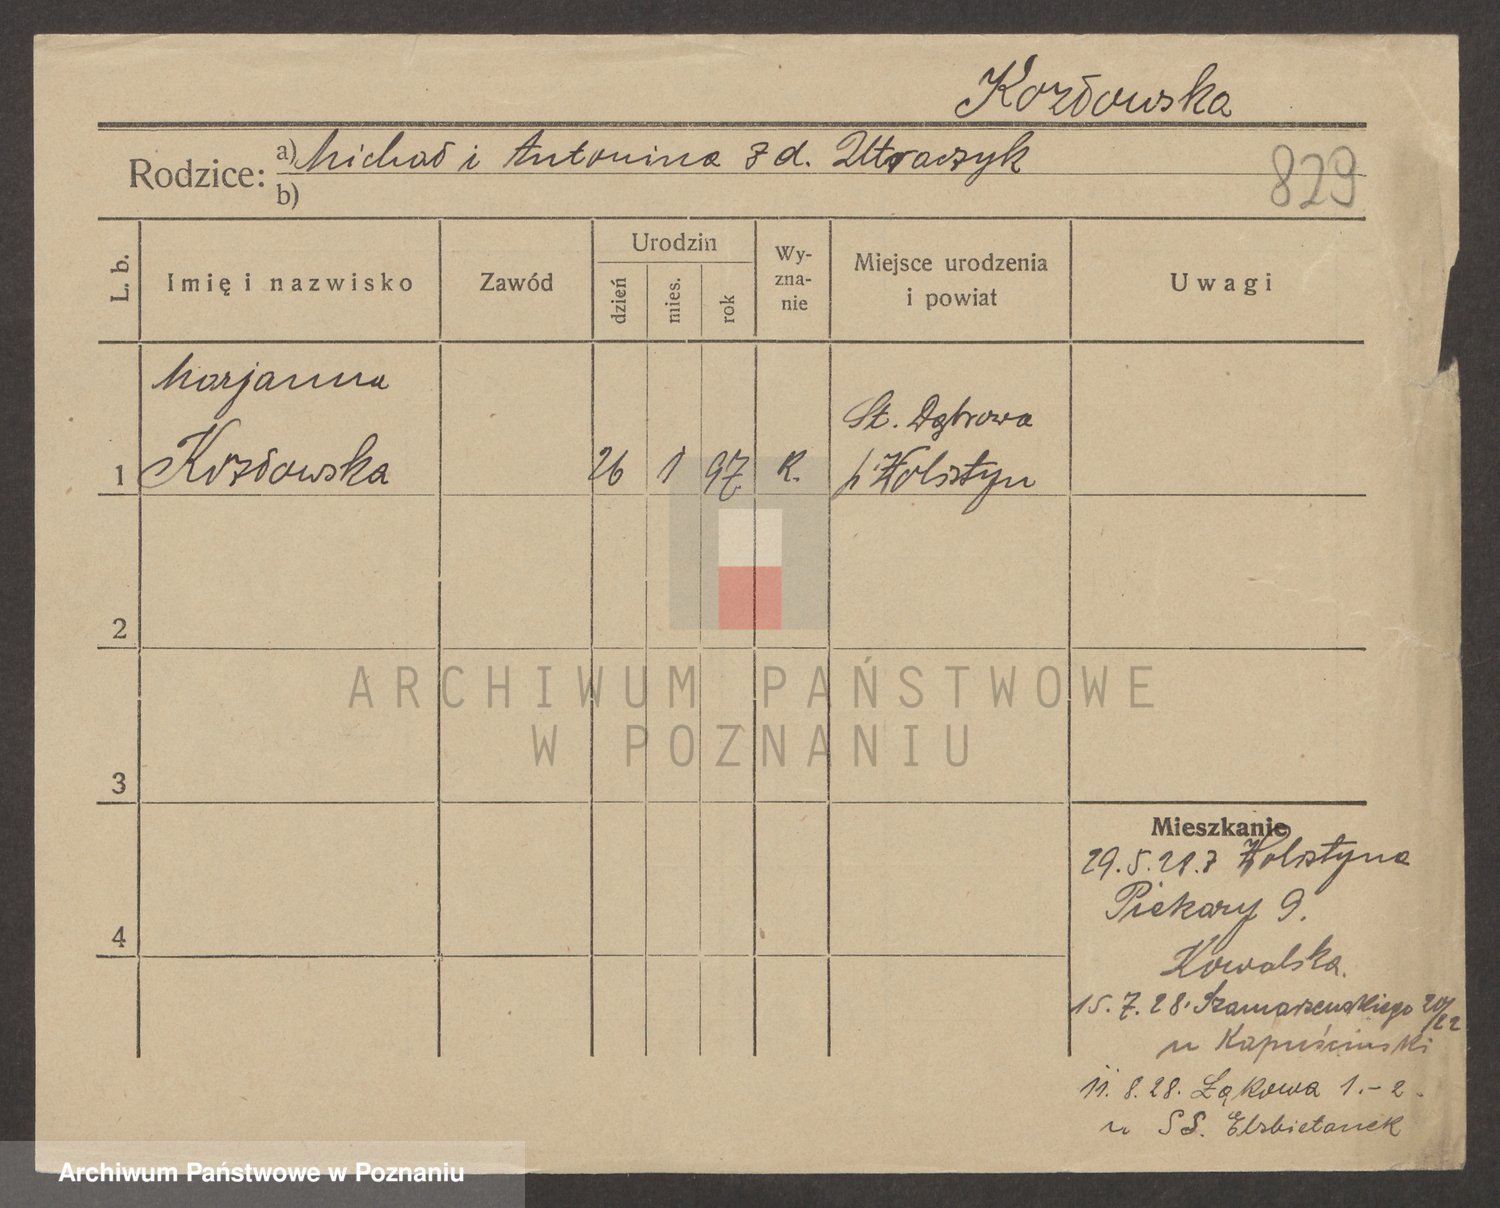 Kozłowska
Rodzice: a) Michał i Antonina z d. Utraczyk
b)
829
L. b.
Imię i nazwisko
Zawód
Urodzin
dzień
mies.
rok
Wy-
zna-
nie
Miejsce urodzenia
i powiat
Uwagi
Marjanna
Kozłowska
St. Dąbrowa
1
26 1 97 R. p. Wolsztyn
2
3
4
Mieszkanie
29.5.28. z Wolsztyna
Piekary 9.
Kowalska.
15.7.28. Szamarzewskiego 20/22
u Kapuściński
11.8.28. Łąkowa 1.-2.
u SS. Elżbietanek
ARCHIWUM PAŃSTWOWE
W POZNANIU
Archiwum Państwowe w Poznaniu